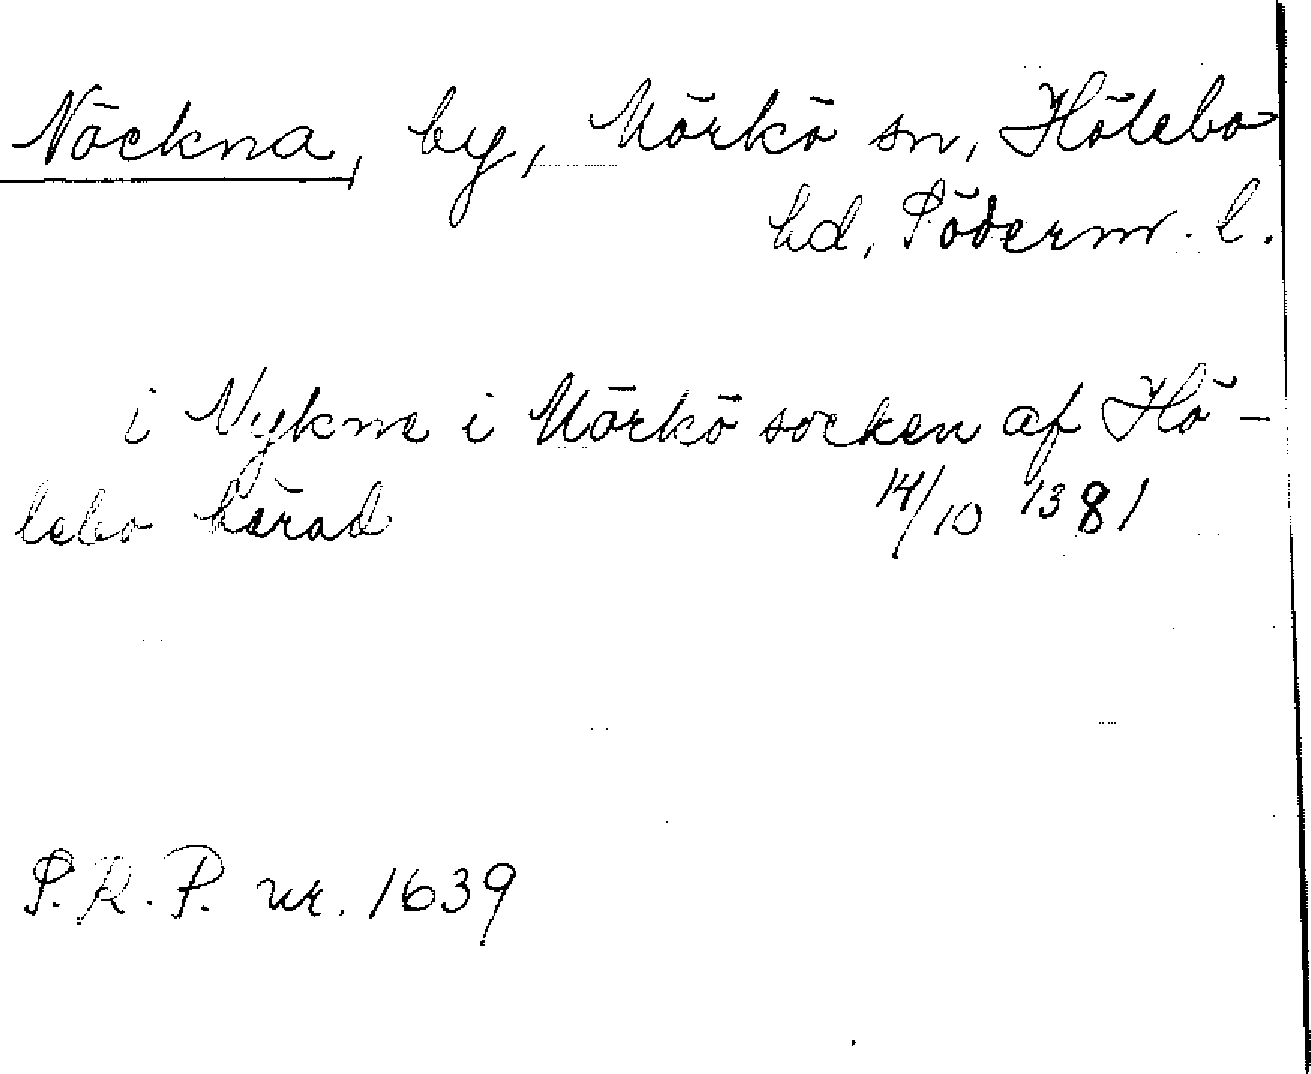 Nöckna, by, Mörkö sn, Hölebo
hd, Söderm. l.
i Nykne i Mörkö socken af Hö-
lebo härad 14/10 1381
S.R.P. nr. 1639